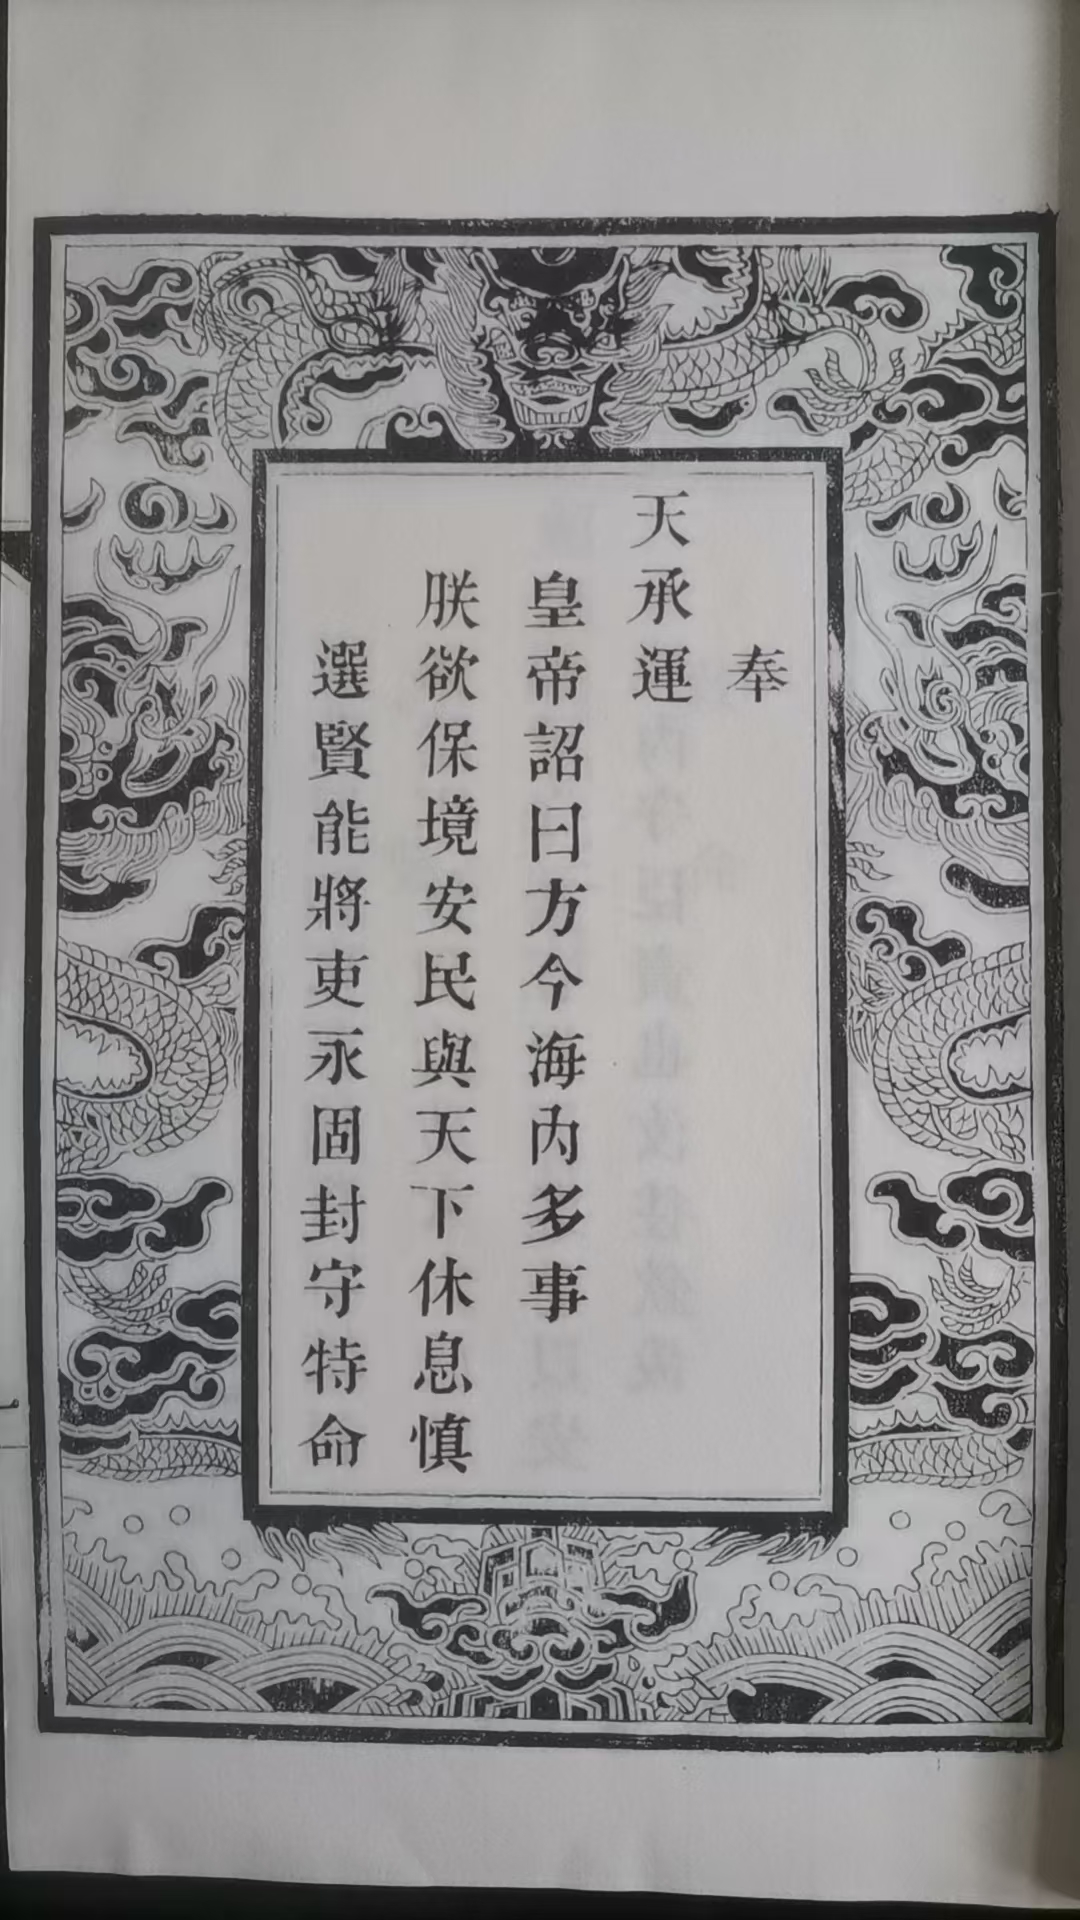 奉
天承運
皇帝詔曰方今海內多事
朕欲保境安民與天下休息慎
選賢能將吏永固封守特命